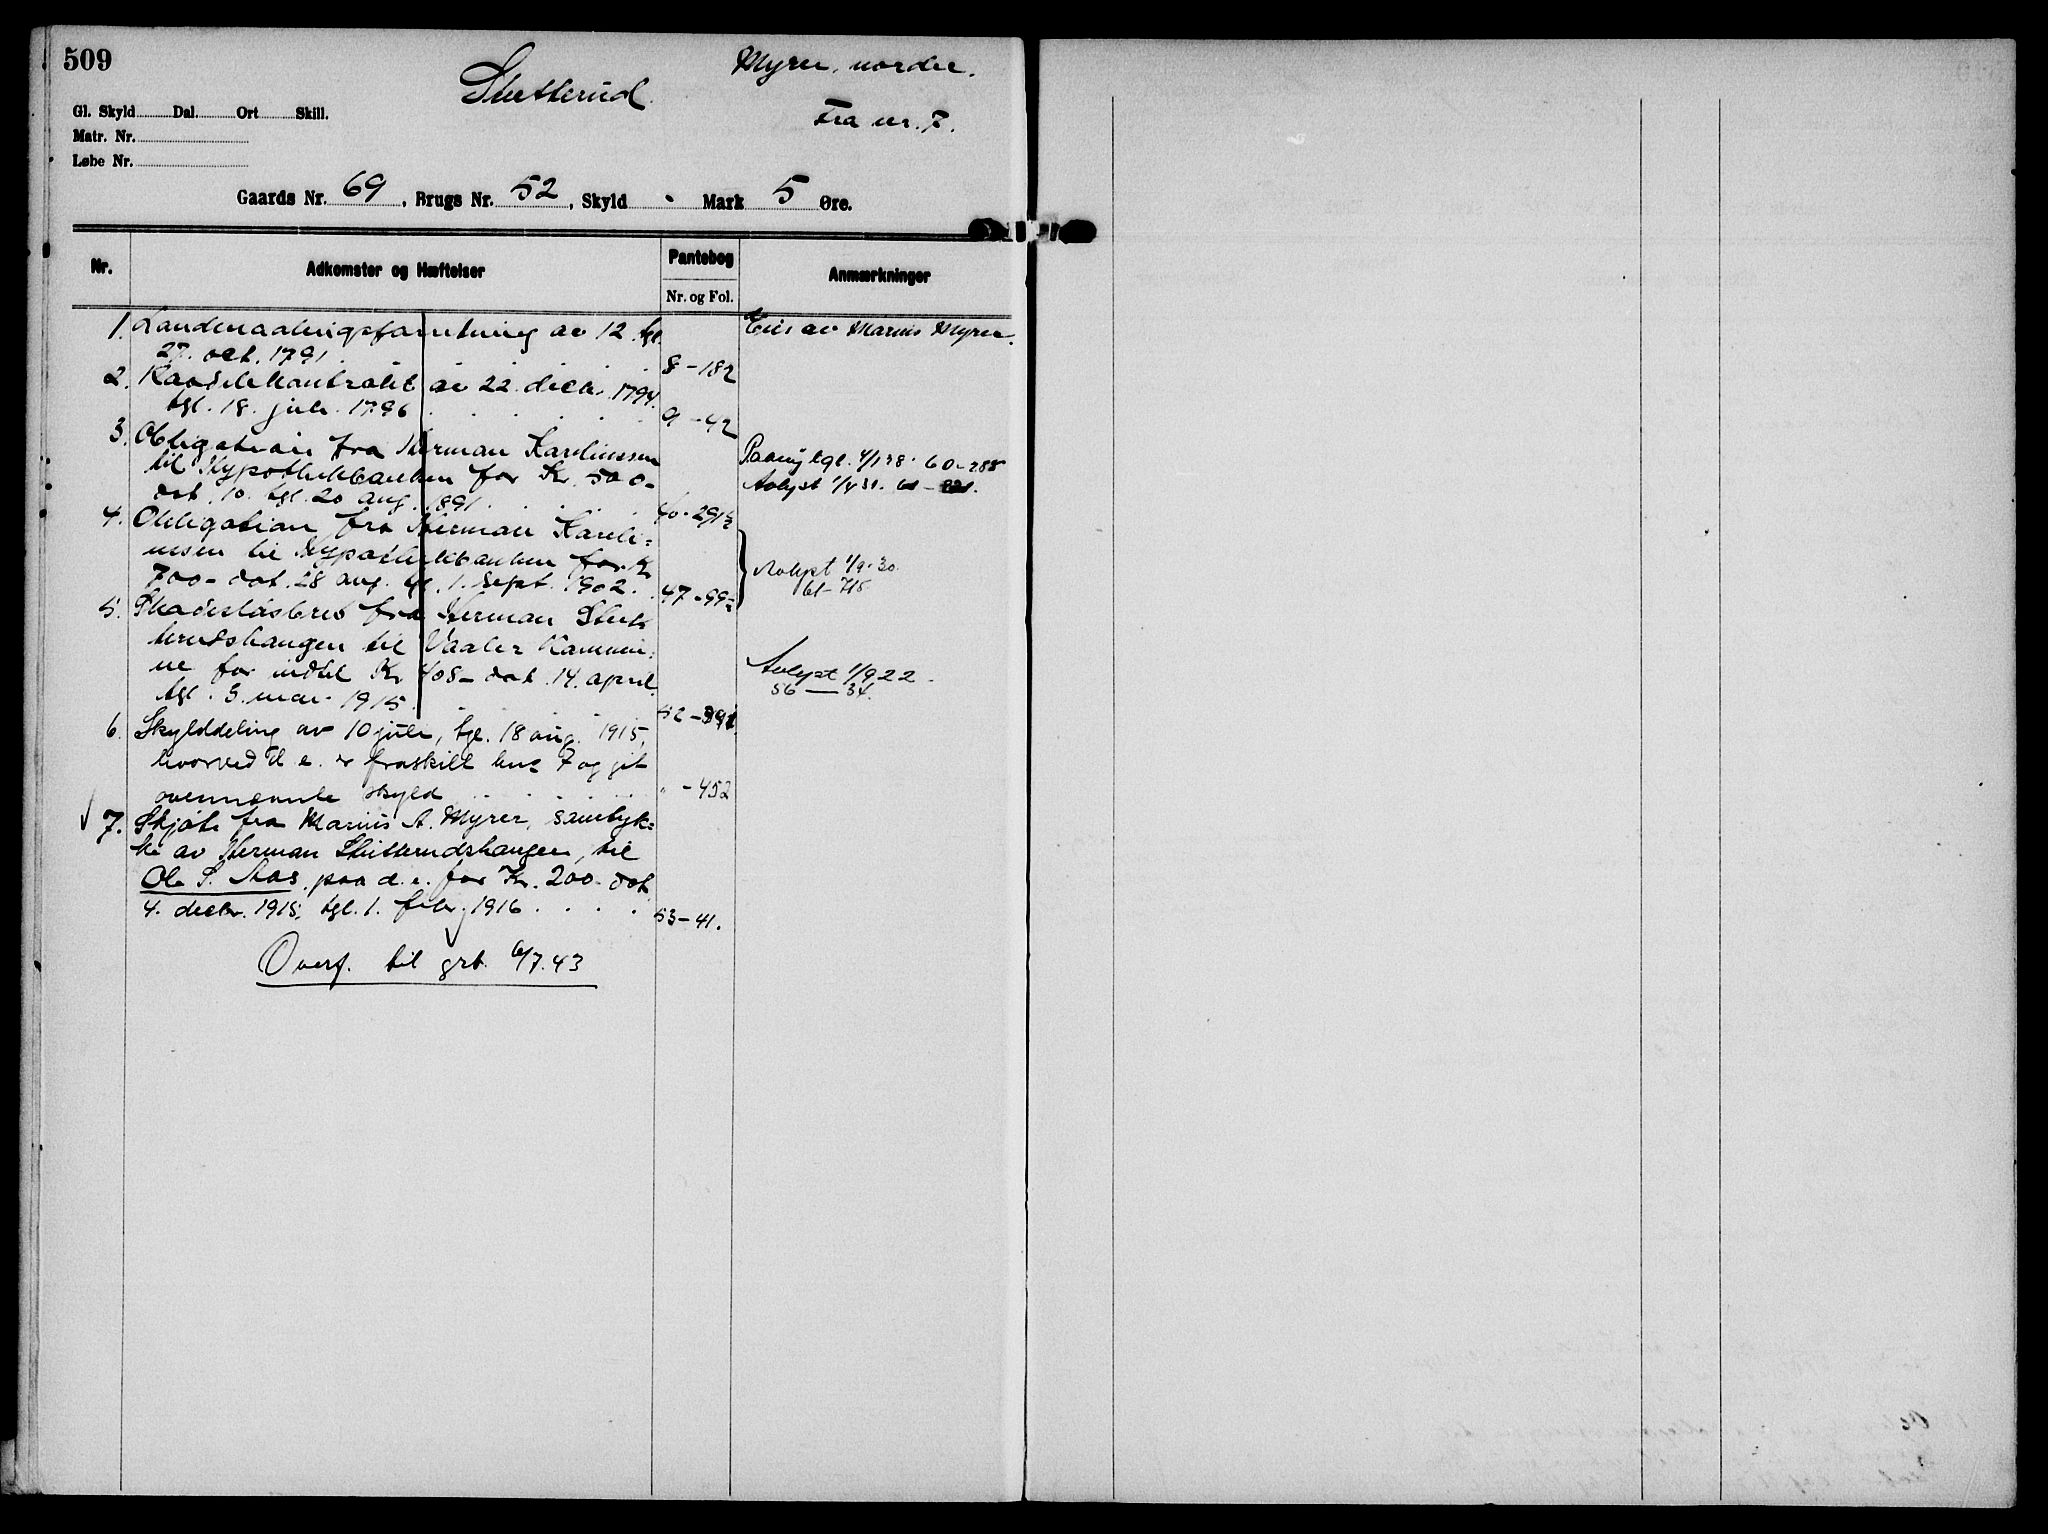 509
Myrer, nordre.
Slutterud.
Fra nr. 7.
Gl. Skyld Dal. Ort Skill.
Matr. Nr.
Løbe Nr.
Gaards Nr. 69, Brugs Nr. 52, Skyld - Mark 5 Øre.
Nr. Adkomster og Hæftelser Pantebog Anmærkninger
Nr. og Fol.
1. av 12. tgl. Eies av Marius Myrer.
27. oct. 1791. 8 - 182
2. av 22. decbr. 1794.
tgl. 18. juli. 1796 9 - 42
3. Obligation fra Herman Karelinssen
til Hypothekbanken for Kr. 500- Paany tgl. 4/1 28. 60-288
dat. 10. tgl. 20 aug. 1891. 40-291 Avlyst 1/4 31.
4. Obligation fra Herman Kareli=
nssen til Hypothekbanken for Kr
700- dat. 28 aug. tgl. 1. sept. 1902. 47-99 Avlyst 1/9.30.
61-718.
5. Skadesløsbrev fra Herman Slut=
terudshaugen til Vaaler Kommu=
ne for indtil Kr. 408- dat. 14. april Avlyst 1/9 22.
tgl. 3. mai 1915. 52-391 56 — 34.
6. Skylddeling av 10 juli, tgl. 18 aug. 1915,
hvorved d. e. er fraskilt bnr 7 og git
ovennævnte skyld " - 452
7. Skjøte fra Marius A. Myrer, samtyk=
ke av Herman Slutterudshaugen, til
Ole S. Aas, paa d. e. for Kr. 200- dat
4. decbr. 1915, tgl. 1. febr. 1916 53-41.
Overf. til grb. 6/7.43